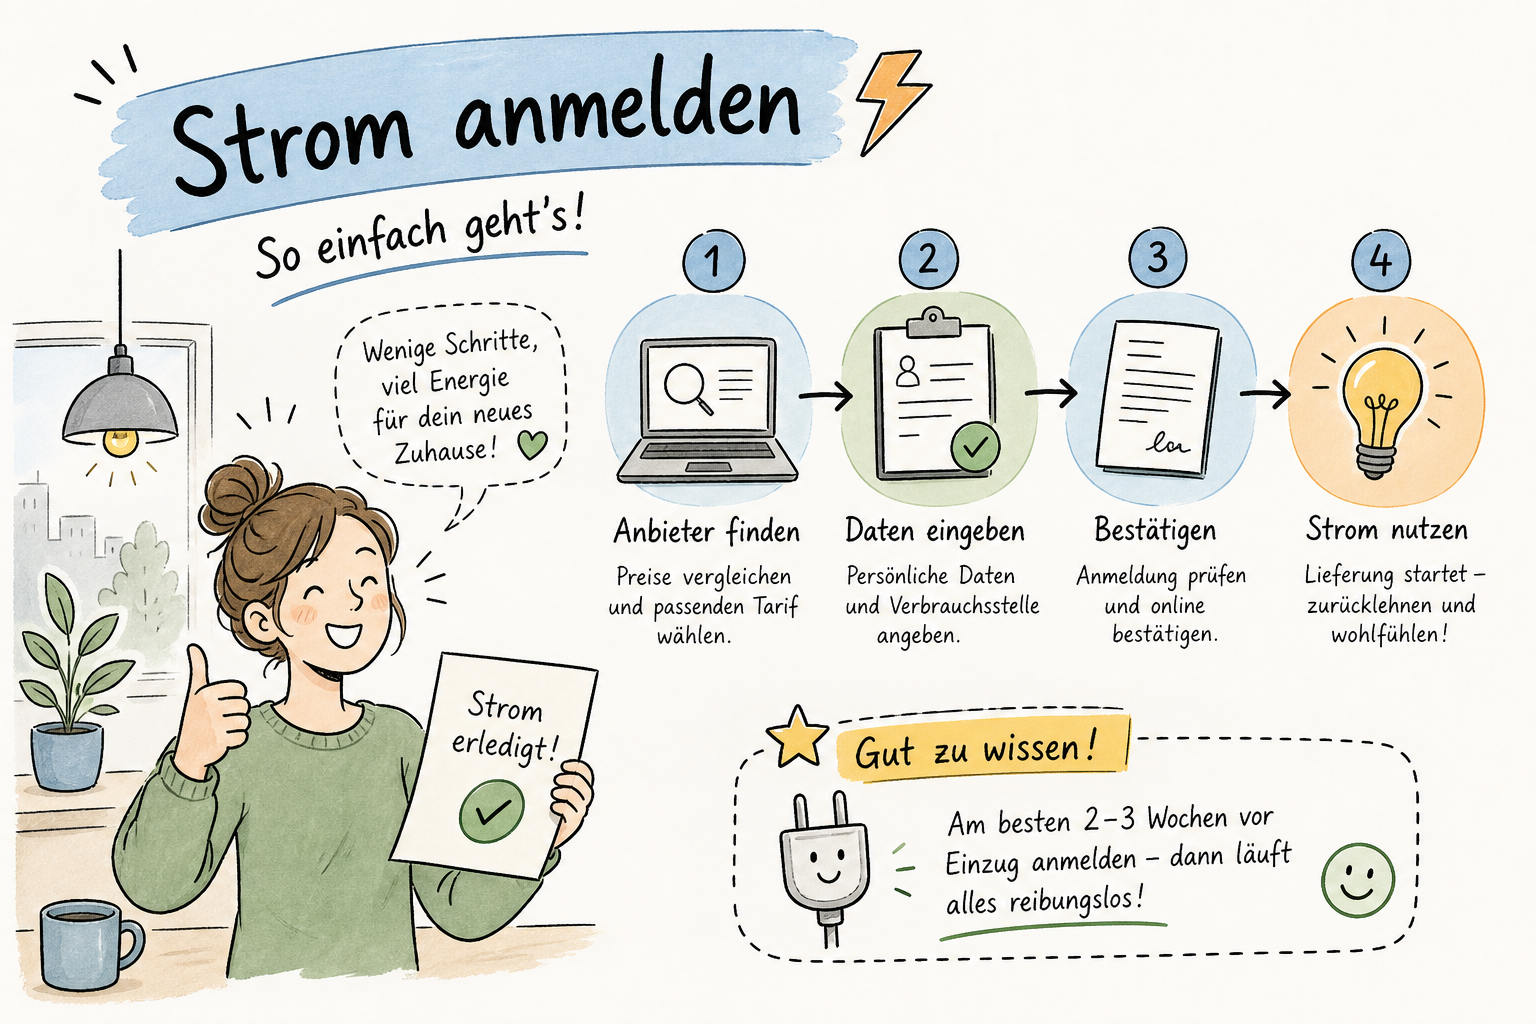 Strom anmelden
So einfach geht's!
Wenige Schritte,
viel Energie
für dein neues
Zuhause!
Strom
erledigt!
1
Anbieter finden
Preise vergleichen
und passenden Tarif
wählen.
2
Daten eingeben
Persönliche Daten
und Verbrauchsstelle
angeben.
3
Bestätigen
Anmeldung prüfen
und online
bestätigen.
4
Strom nutzen
Lieferung startet –
zurücklehnen und
wohlfühlen!
Gut zu wissen!
Am besten 2–3 Wochen vor
Einzug anmelden – dann läuft
alles reibungslos!